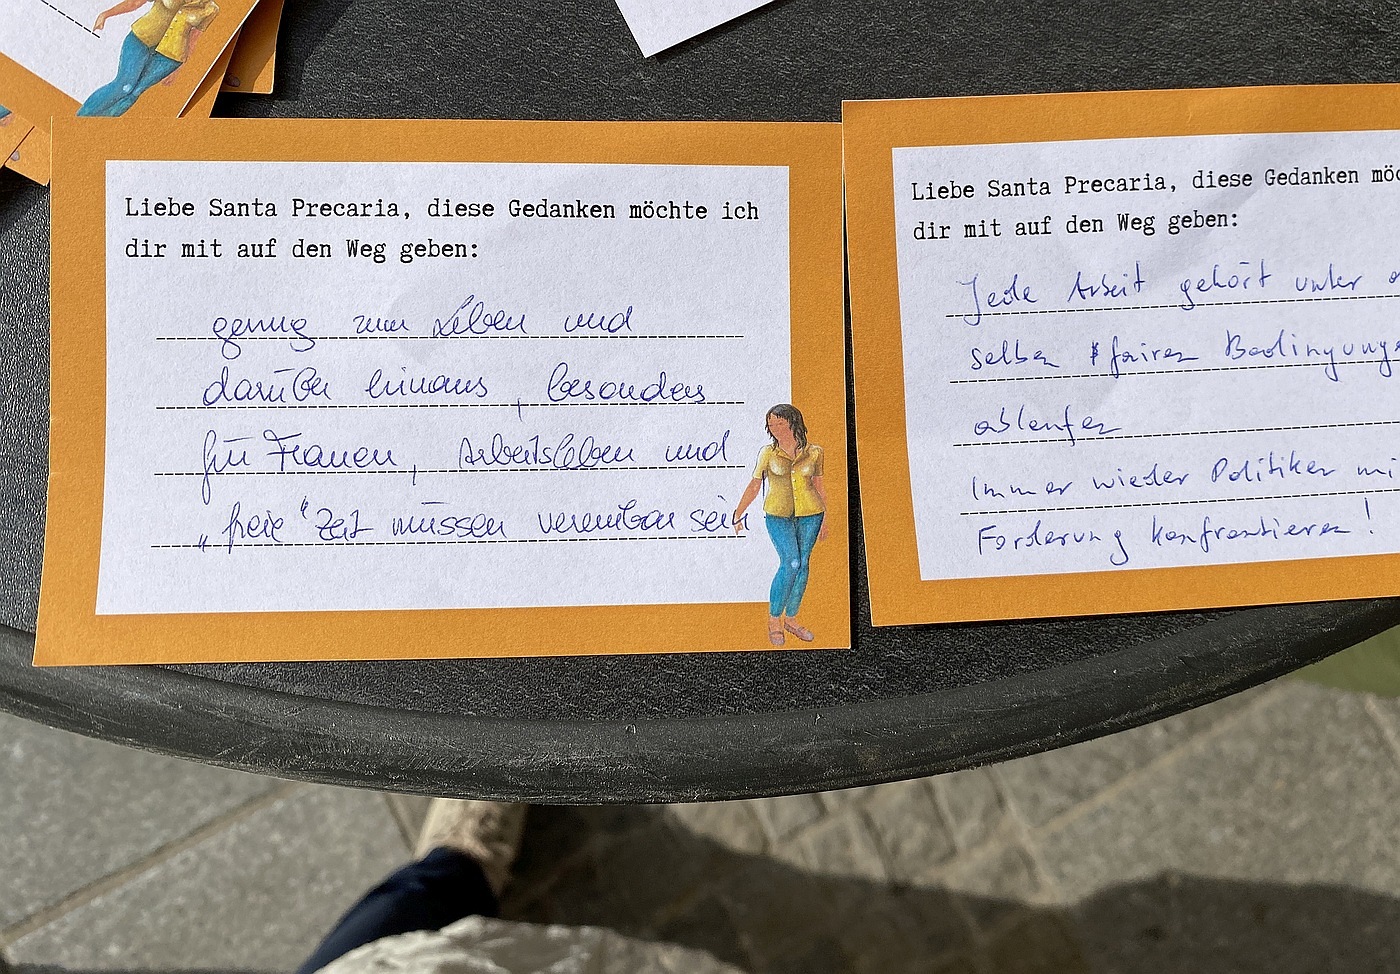 Liebe Santa Precaria, diese Gedanken möchte ich
dir mit auf den Weg geben:
genug zum Leben und
darüber hinaus, besonders
für Frauen, Arbeitsleben und
„freie“ Zeit müssen vereinbar sein
Liebe Santa Precaria, diese Gedanken möc
dir mit auf den Weg geben:
Jede Arbeit gehört unter
selben fairen Bedingunge
ablaufen
Immer wieder Politiker mi
Forderung konfrontieren!